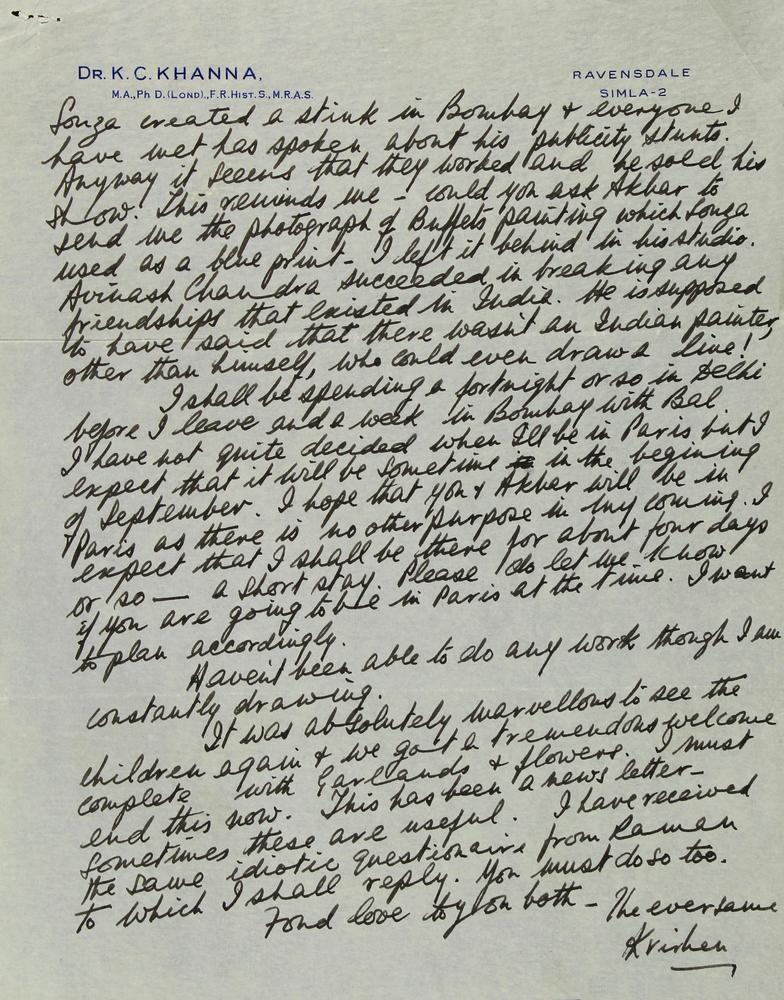 DR. K. C. KHANNA,
M.A., Ph D. (LOND)., F.R. HIST. S., M.R.A.S.
RAVENSDALE
SIMLA-2
Souza created a stink in Bombay & everyone I
have met has spoken about his publicity stunts.
Anyway it seems that they worked and he sold his
show. This reminds me - could you ask Akbar to
send me the photograph of Buffets painting which Souza
used as a blue print - I left it behind in his studio.
Avinash Chandra succeeded in breaking any
friendships that existed in India. He is supposed
to have said that there wasn't an Indian painter,
other than himself, who could even draw a line!
I shall be spending a fortnight or so in Delhi
before I leave and a week in Bombay with Bal.
I have not quite decided when I'll be in Paris but I
expect that it will be sometime in the begining
of September. I hope that you & Akbar will be in
Paris as there is no other purpose in my coming. I
expect that I shall be there for about four days
or so — a short stay. Please do let me know
if you are going to be in Paris at the time. I want
to plan accordingly.
Haven't been able to do any work though I am
constantly drawing.
It was absolutely marvellous to see the
children again & we got a tremendous welcome
complete with garlands & flowers. I must
end this now. This has been a news letter -
sometimes these are useful. I have received
the same idiotic questionaire from Raman
to which I shall reply. You must do so too.
Fond love to you both - The ever same
Krishen